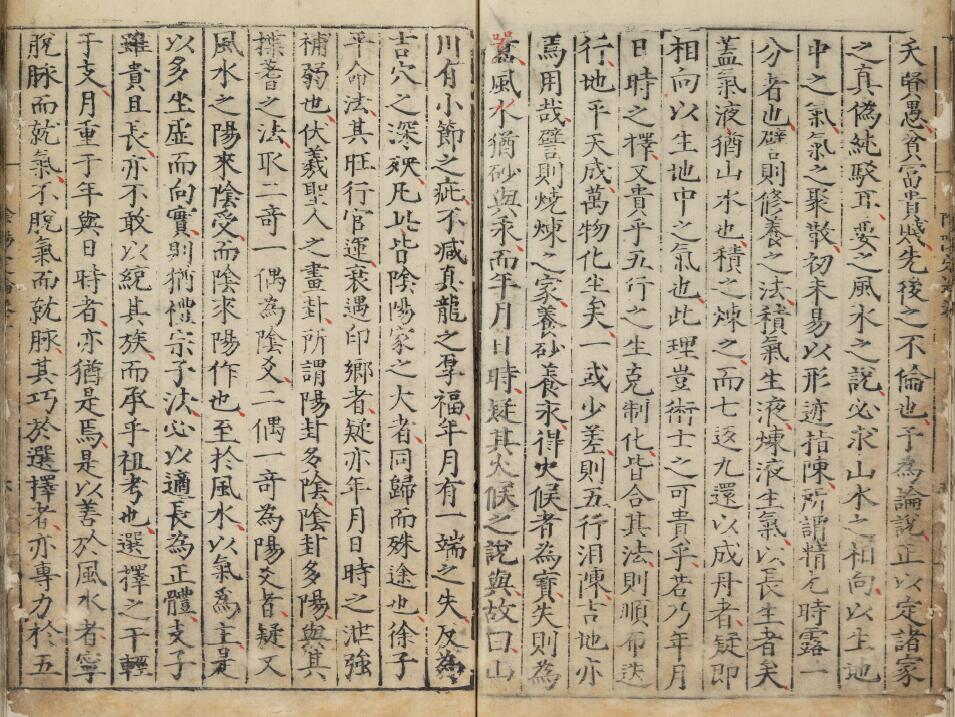 夭賢愚貧富貴賤先後之不倫也予為論說正以定諸家
之真偽純駁耳要之風水之說必求山水之相向以生地
中之氣氣之聚散初未易以形迹指陳所謂精光時露一
分者也譬則修養之法積氣生液煉液生氣以長生者矣
蓋氣液猶山水也積之煉之而七返九還以成丹者疑即
相向以生地中之氣也此理豈術士之可貴乎若乃年月
日時之擇又貴乎五行之生克制化皆合其法則順布迭
行地平天成萬物化生矣一或少差則五行汨陳吉地亦
焉用哉譬則燒煉之家養砂養汞得火候者為寶失則為
風水猶砂與汞而年月日時疑其火候之說與故曰山
川有小節之疵不減真龍之厚福年月有一端之失反為
吉穴之深殃凡此皆陰陽家之大者同歸而殊途也徐子
平命法其旺行官運衰遇印鄉者疑亦年月日時之泄強
補弱也伏羲聖人之畫卦所謂陽卦多陰陰卦多陽與其
揲蓍之法取二奇一偶為陰爻二偶一奇為陽爻者疑又
風水之陽來陰受而陰來陽作也至於風水以氣為主是
以多坐虛而向實則猶禮宗子法必以適長為正體支子
雖貴且長亦不敢以統其族而承乎祖考也選擇之干輕
于支月重于年與日時者亦猶是焉是以善於風水者寧
脫脉而就氣不脫氣而就脉其巧於選擇者亦專力於五